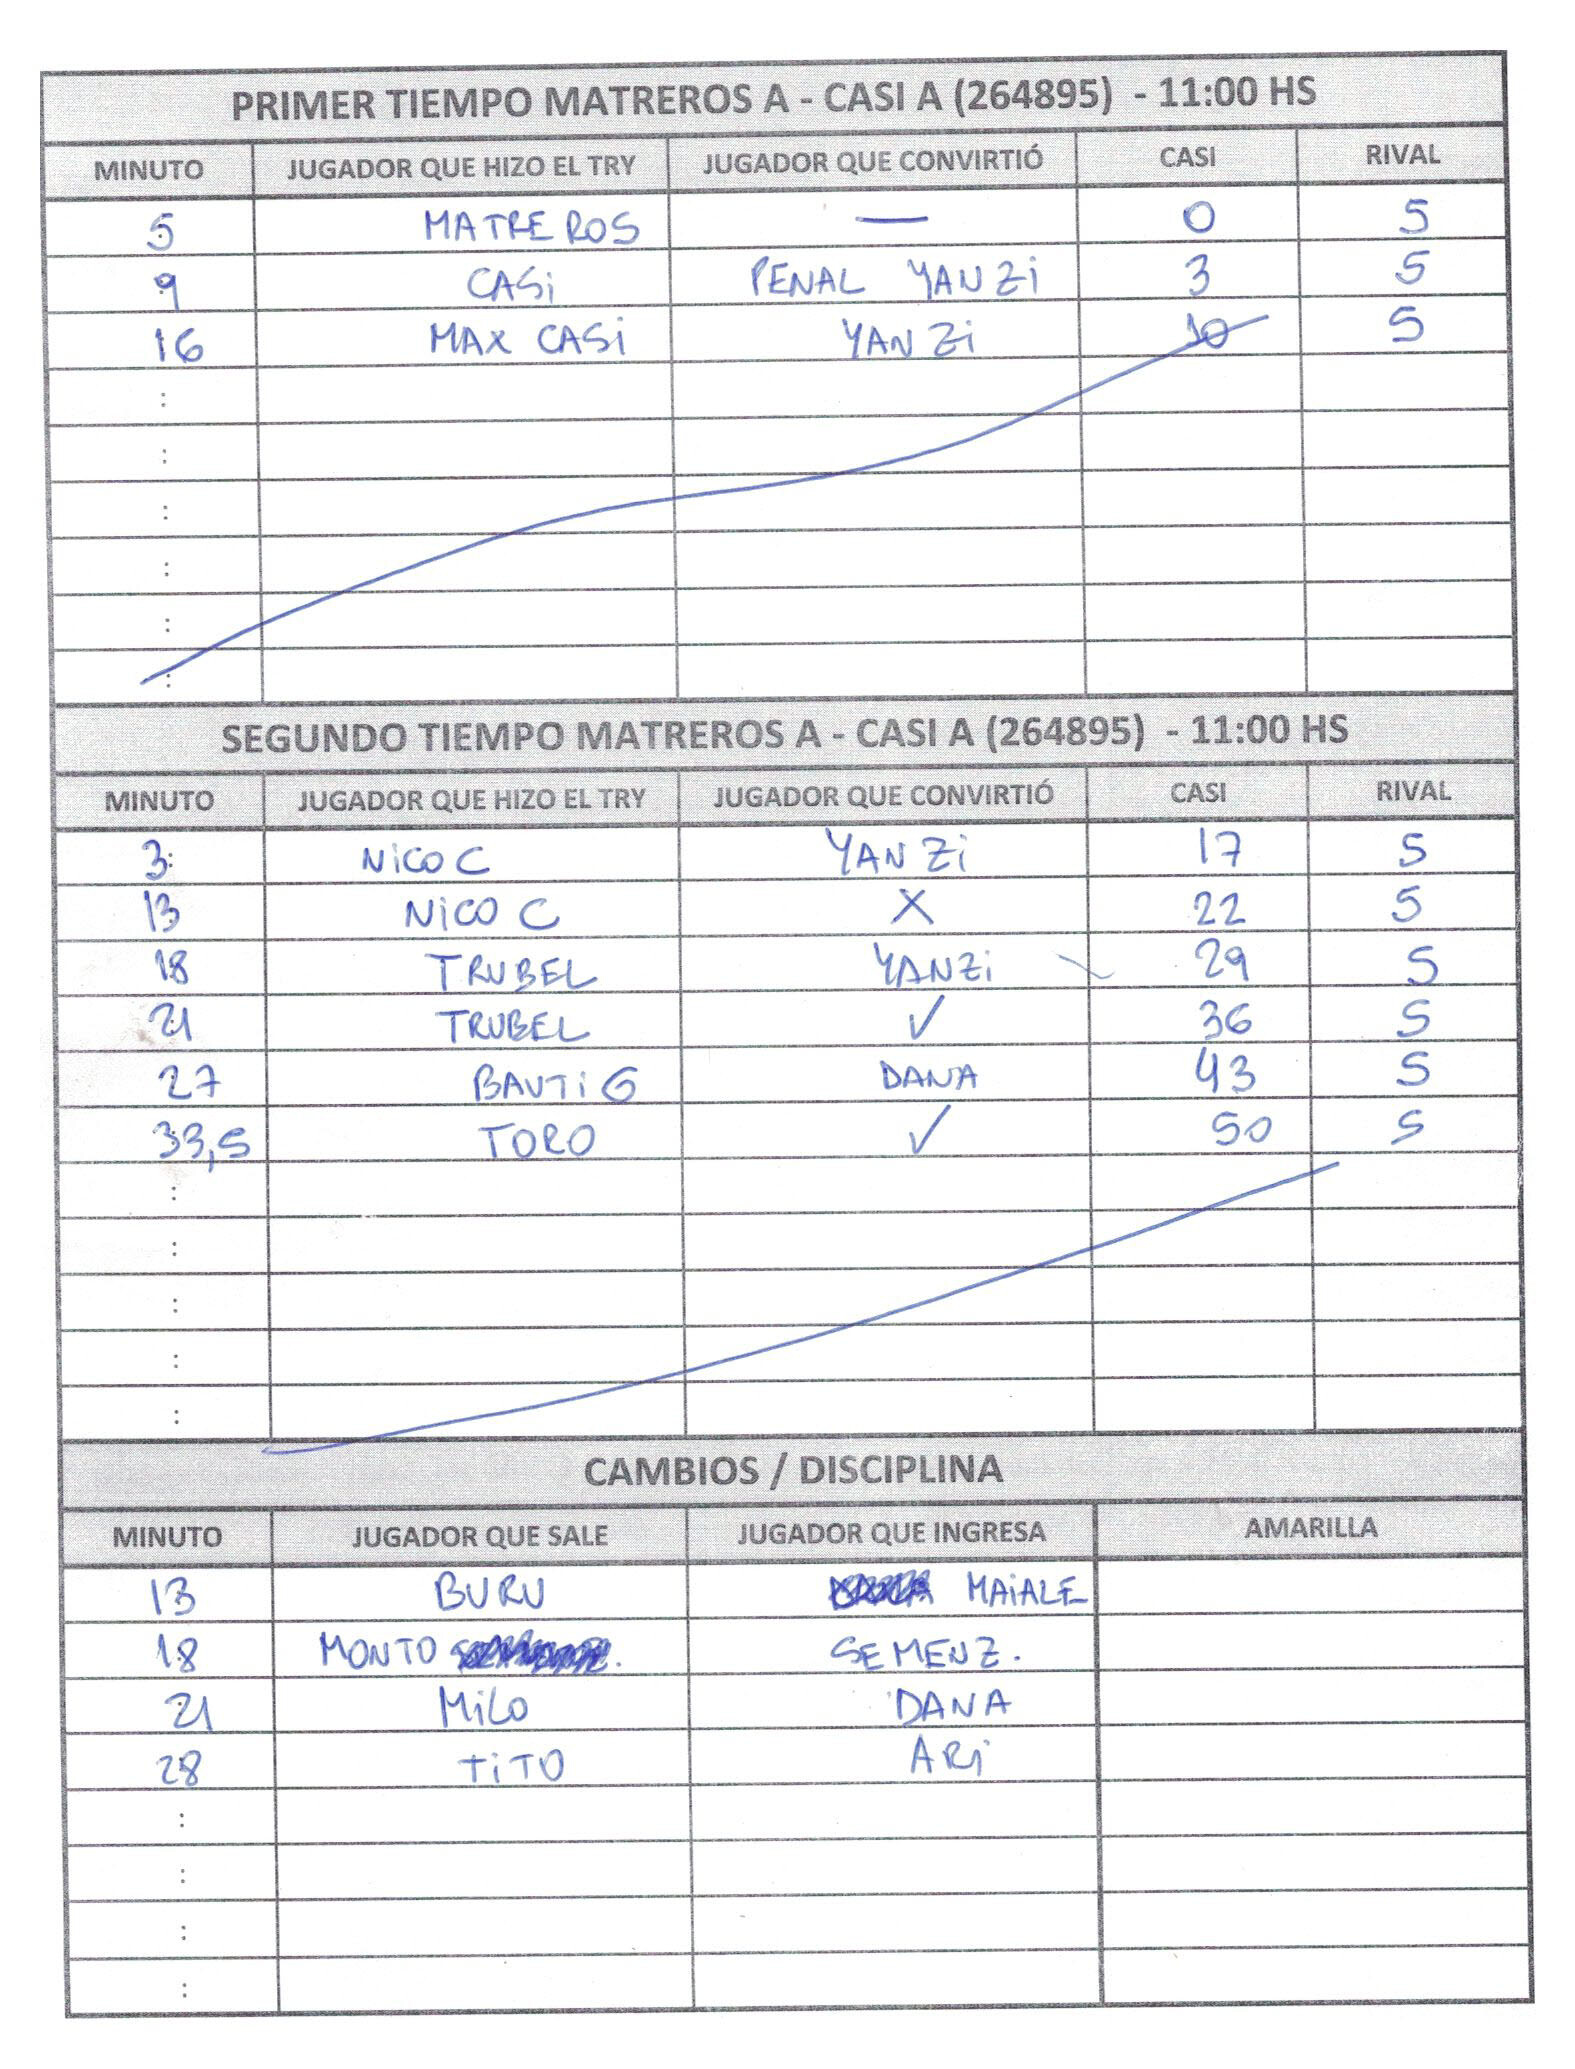 PRIMER TIEMPO MATREROS A - CASI A (264895) - 11:00 HS
MINUTO JUGADOR QUE HIZO EL TRY JUGADOR QUE CONVIRTIÓ CASI RIVAL
5 MATREROS — 0 5
9 CASI PENAL YANZI 3 5
16 MAX CASI YANZI 10 5
:
:
:
:
:
:
SEGUNDO TIEMPO MATREROS A - CASI A (264895) - 11:00 HS
MINUTO JUGADOR QUE HIZO EL TRY JUGADOR QUE CONVIRTIÓ CASI RIVAL
3: NICO C YANZI 17 5
13 NICO C X 22 5
18 TRUBEL YANZI 29 5
21 TRUBEL ✓ 36 5
27 BAUTI G DANA 43 5
33,5 TORO ✓ 50 5
:
:
:
:
:
CAMBIOS / DISCIPLINA
MINUTO JUGADOR QUE SALE JUGADOR QUE INGRESA AMARILLA
13 BURU MAIALE
18 MONTO SEMENZ.
21 MILO DANA
28 TITO ARI
:
:
:
: